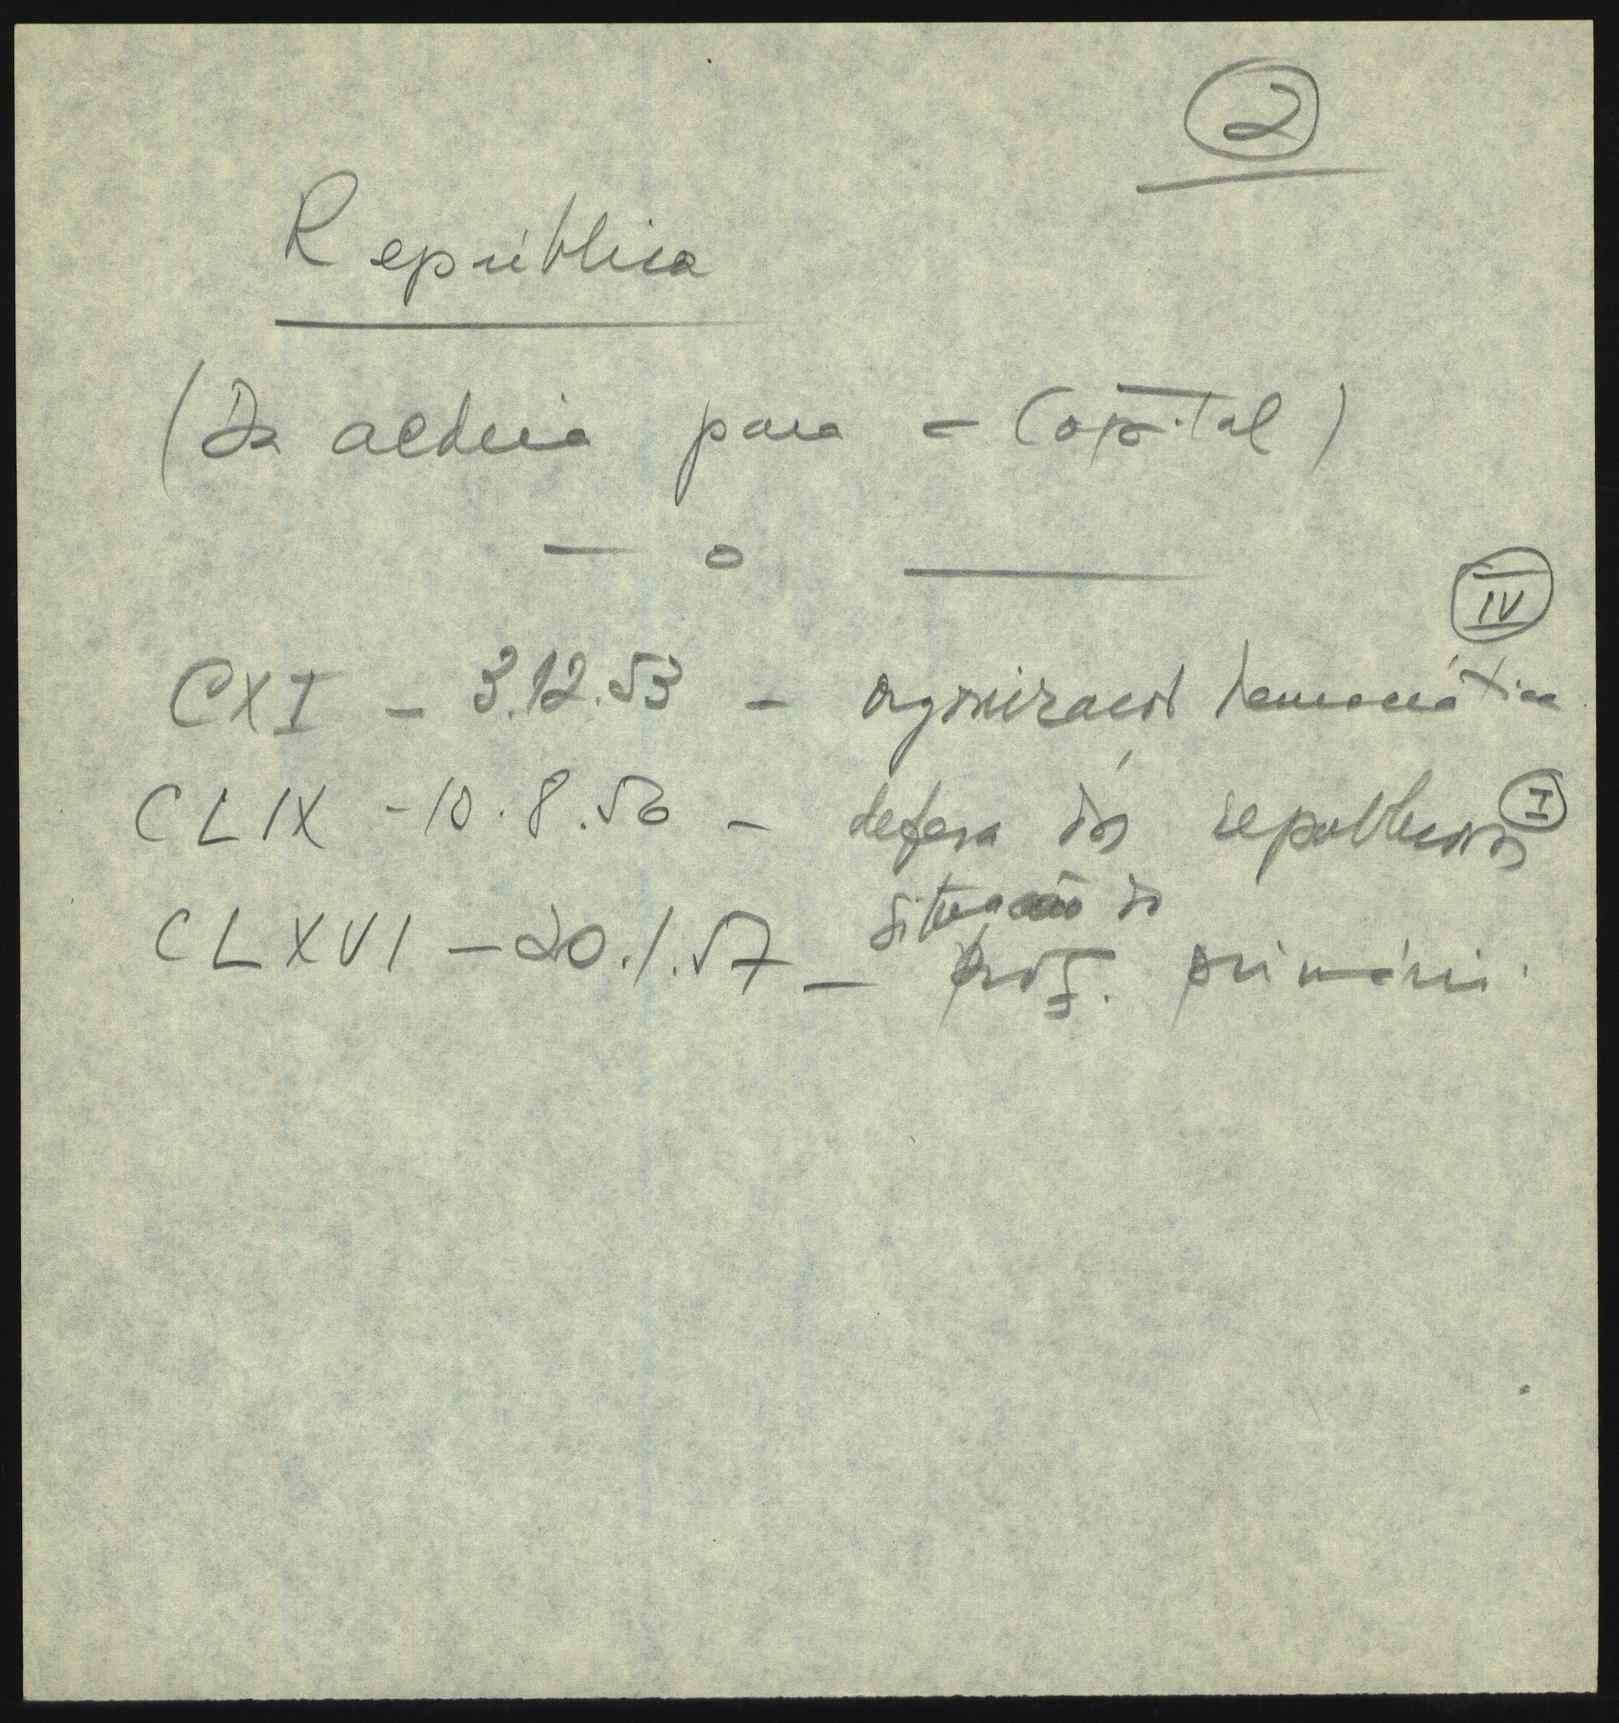 2
República
(Da aldeia para a Capital)
— o —
IV
CXI - 3.12.53 - organização democrática
CLIX - 10.8.56 - defesa dos republicanos I
situação do
CLXVI - 20.1.57 - prof. primário